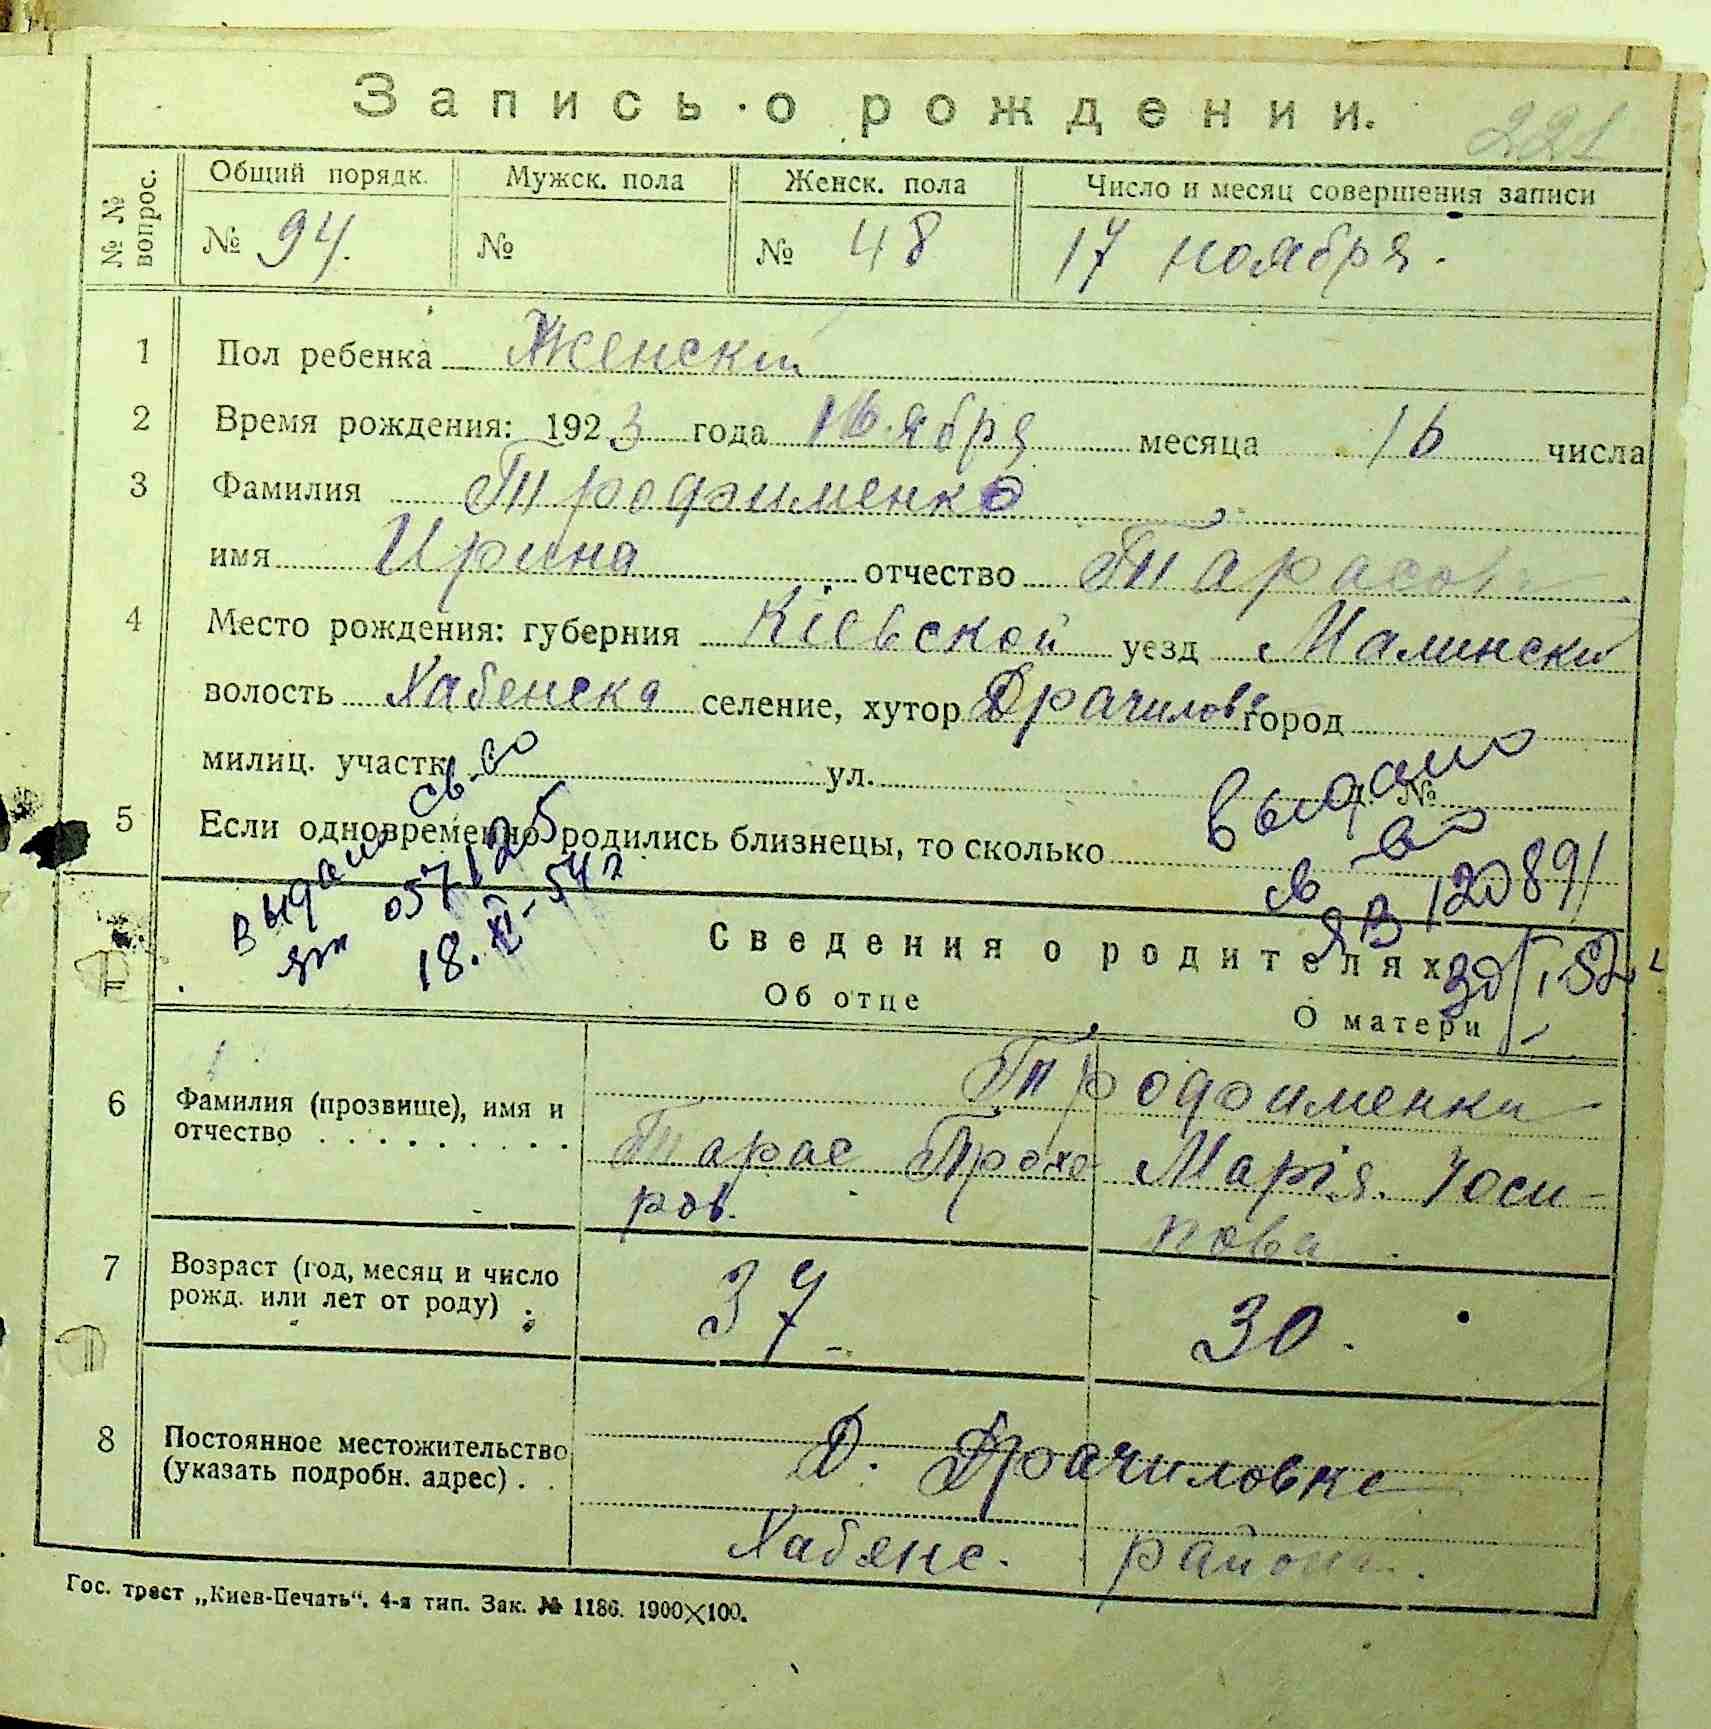 Запись о рождении.
221
№№ вопрос.
Общий порядк. Мужск. пола Женск. пола Число и месяц совершения записи
№ 94. № № 48 17 ноября.
1 Пол ребенка Женски
2 Время рождения: 1923 года ября месяца 16 числа
3 Фамилия Трофименко
имя Ирина отчество Тарасов
4 Место рождения: губерния Кіевской уезд Малински
волость Хабенска селение, хутор Драчиловк город
милиц. участк ул. д. №
5 Если одновременно родились близнецы, то сколько
выдано св-во
яп 057125
18.XI-54 г
выдано
св-во
ЯВ 120891
30/I 52 г
Сведения о родителях
Об отце О матери
6 Фамилия (прозвище), имя и отчество
Трофименки
Тарас Прохо Марія. Йоси-
ров. пова.
7 Возраст (год, месяц и число рожд. или лет от роду)
37 30.
8 Постоянное местожительство (указать подробн. адрес)
Д. Драчиловке
Хабянс. район.
Гос. трест „Киев-Печать“. 4-я тип. Зак. № 1186. 1900×100.